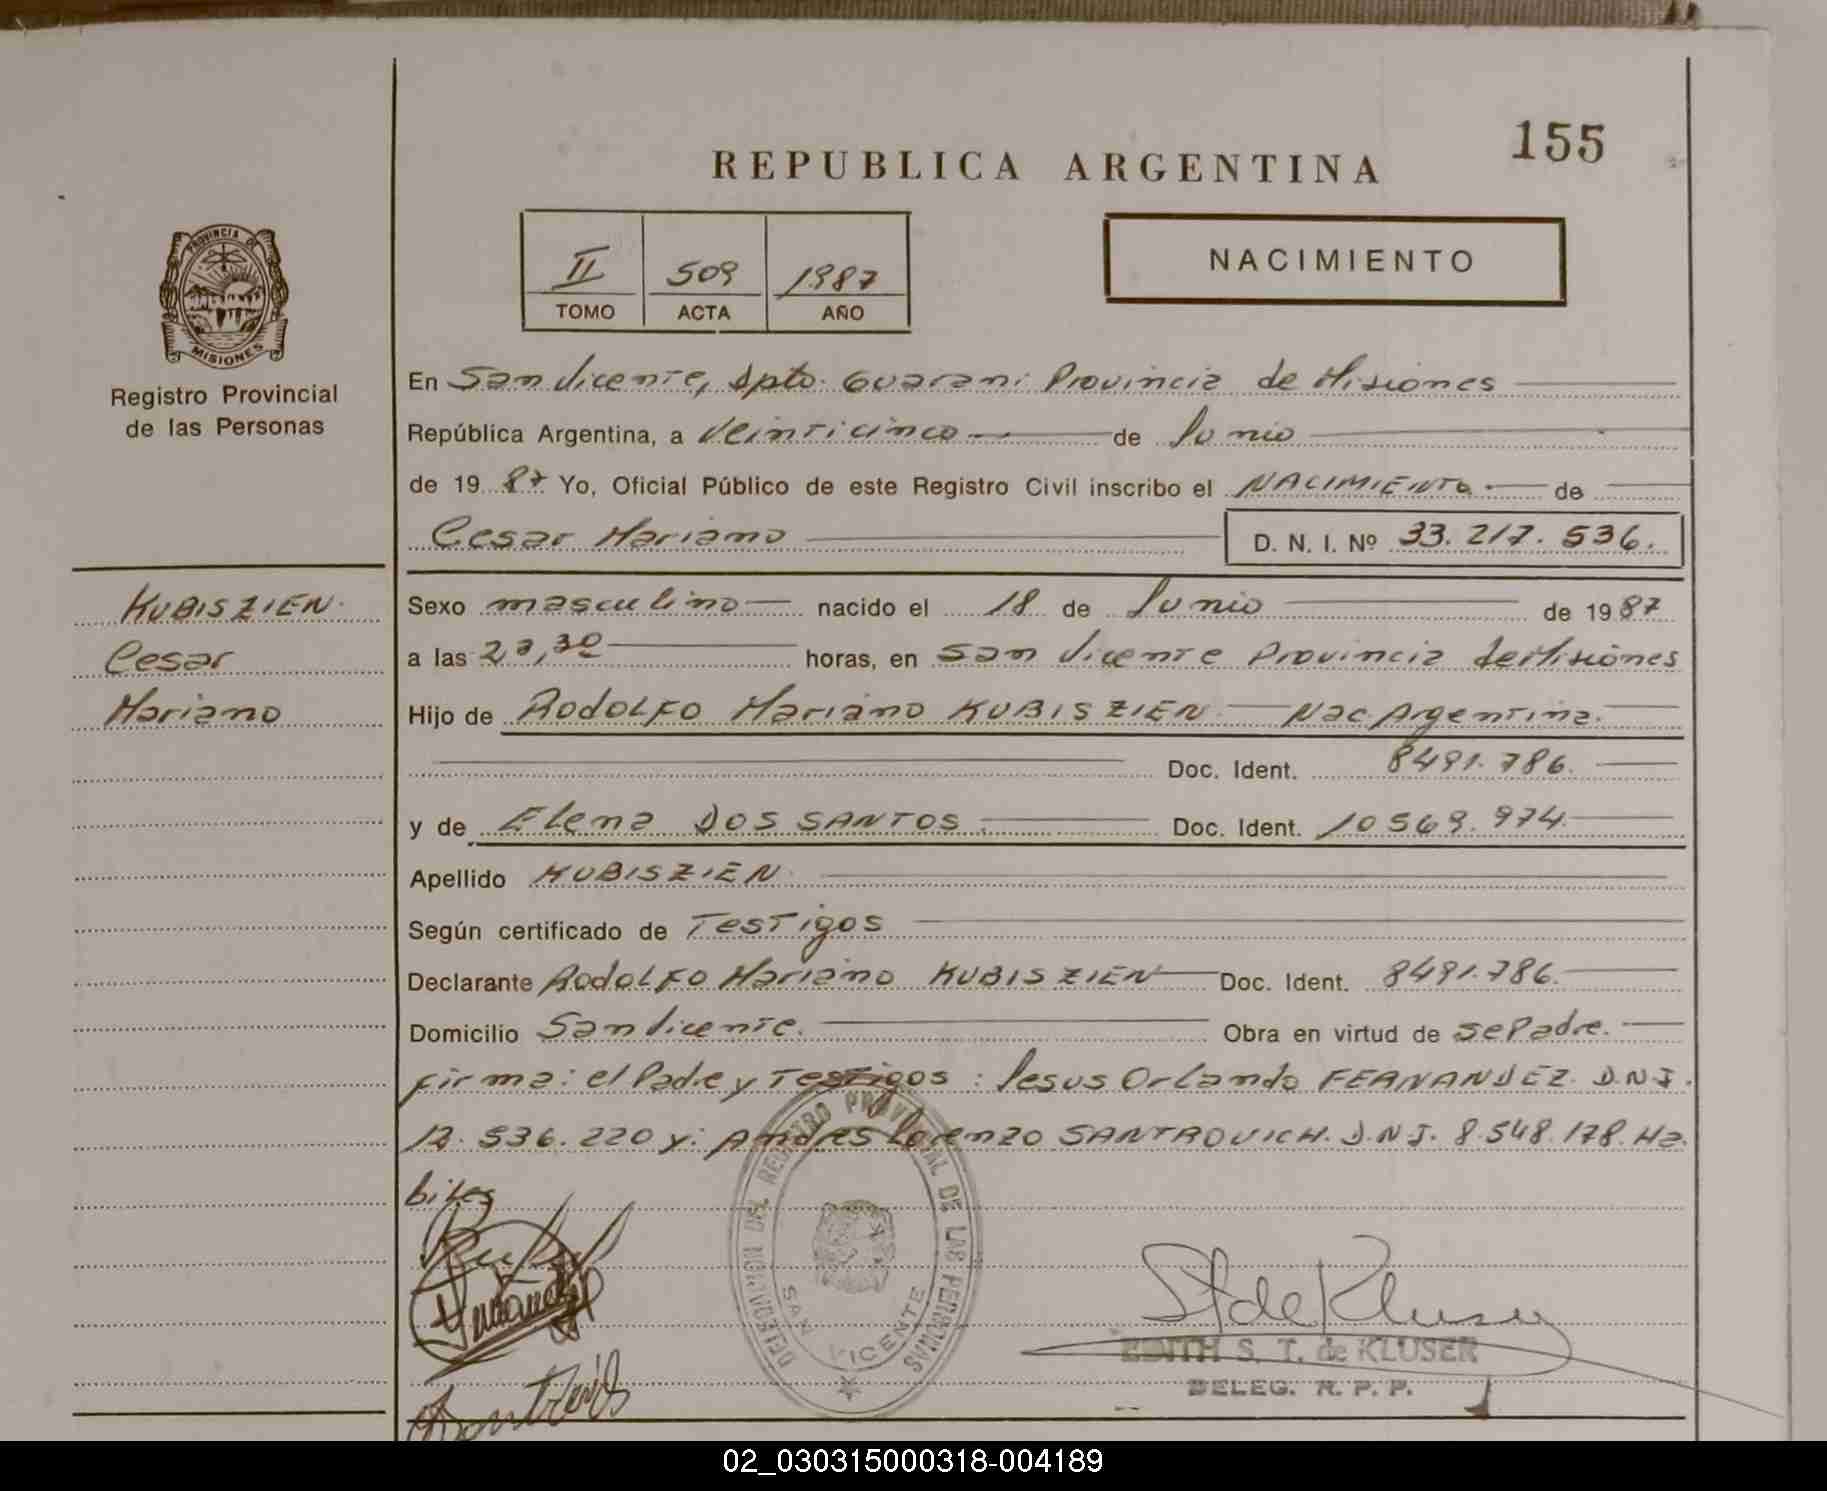 155
REPUBLICA ARGENTINA
II 509 1987
TOMO ACTA AÑO
NACIMIENTO
PROVINCIA DE
MISIONES
Registro Provincial
de las Personas
En San Vicente, Dpto. Guarani Provincia de Misiones
República Argentina, a Veinticinco de Junio
de 19 87 Yo, Oficial Público de este Registro Civil inscribo el NACIMIENTO de
Cesar Mariano D. N. I. Nº 33.217.536.
KUBISZIEN.
Cesar
Mariano
Sexo masculino nacido el 18 de Junio de 19 87
a las 23,30 horas, en San Vicente Provincia de Misiones
Hijo de Rodolfo Mariano KUBISZIEN. Nac. Argentina.
Doc. Ident. 8491.786.
y de Elena DOS SANTOS. Doc. Ident. 10569.974.
Apellido KUBISZIEN.
Según certificado de Testigos
Declarante Rodolfo Mariano KUBISZIEN Doc. Ident. 8491.786.
Domicilio San Vicente. Obra en virtud de se Padre.
Firma: el Padre y Testigos: Jesus Orlando FERNANDEZ. D.N.I.
12.536.220 y: Andres Lorenzo SANTROVICH. D.N.I. 8.548.178. Ha
biles
DELEGACION DEL REGISTRO PROVINCIAL DE LAS PERSONAS
SAN VICENTE
St de Kluser
EDITH S. T. de KLUSER
DELEG. R. P. P.
02_030315000318-004189